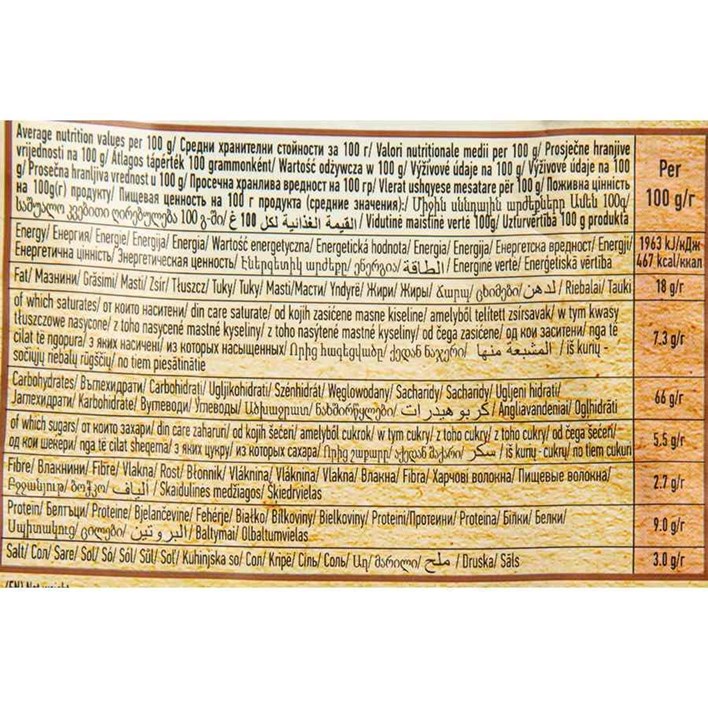 Average nutrition values per 100 g/ Средни хранителни стойности за 100 г/ Valori nutriționale medii per 100 g/ Prosječne hranjive
vrijednosti na 100 g/ Átlagos tápérték 100 grammonként/ Wartość odżywcza w 100 g/ Výživové údaje na 100 g/ Výživové údaje na 100
g/ Prosečna hranljiva vrednost u 100 g/ Просечна хранлива вредност на 100 гр/ Vlerat ushqyese mesatare për 100 g/ Поживна цінність
на 100g(г) продукту/ Пищевая ценность на 100 г продукта (средние значения)/ Միջին սննդային արժեքները Ամեն 100գ/
საშუალო კვებითი ღირებულება 100 გ-ში/ القيمة الغذائية لكل 100 غ / Vidutinė maistinė vertė 100g/ Uzturvērtība 100 g produkta
Per
100 g/г
Energy/ Енергия/ Energie/ Energija/ Energia/ Wartość energetyczna/ Energetická hodnota/ Energia/ Energija/ Енергетска вредност/ Energji/
Енергетична цінність/ Энергетическая ценность/ Էներգետիկ արժեքը/ ენერგია/ الطاقة / Energinė vertė/ Enerģētiskā vērtība
1963 kJ/кДж
467 kcal/ккал
Fat/ Мазнини/ Grăsimi/ Masti/ Zsír/ Tłuszcz/ Tuky/ Tuky/ Masti/Масти/ Yndyrë/ Жири/ Жиры/ Ճարպ/ ცხიმები/ لدهن/ Riebalai/ Tauki
18 g/г
of which saturates/ от които наситени/ din care saturate/ od kojih zasićene masne kiseline/ amelyből telített zsírsavak/ w tym kwasy
tłuszczowe nasycone/ z toho nasýtené mastné kyseliny/ z toho nasýtené mastné kyseliny/ od čega zasićene/ од кои заситени/ nga të
cilat të ngopura/ з яких насичені/ из которых насыщенных/ Որից հագեցվածը/ ქედან ნაჯერი/ المشبعة منها / iš kurių -
sočiųjų riebalų rūgščių/ no tiem piesātinātie
7.3 g/г
Carbohydrates/ Въглехидрати/ Carbohidrați/ Ugljikohidrati/ Szénhidrát/ Węglowodany/ Sacharidy/ Sacharidy/ Ugljeni hidrati/
Јаглехидрати/ Karbohidrate/ Вуглеводи/ Углеводы/ Ածխաջրատ/ ნახშირწყლები/ كربو هيدرات / Angliavandeniai/ Ogļhidrāti
66 g/г
of which sugars/ от които захари/ din care zaharuri/ od kojih šećeri/ amelyből cukrok/ w tym cukry/ z toho cukry/ z toho cukry/ od čega šećeri/
од кои шеќери/ nga të cilat sheqerna/ з яких цукру/ из которых сахара/ Որից շաքարը/ აქედან შაქარი/ سكر / iš kurių - cukrų/ no tiem cukuri
5.5 g/г
Fibre/ Влакнини/ Fibre/ Vlakna/ Rost/ Błonnik/ Vláknina/ Vláknina/ Vlakna/ Влакна/ Fibra/ Харчові волокна/ Пищевые волокна/
Բջջանյութ/ ბოჭკო/ ألياف / Skaidulinės medžiagos/ Šķiedrvielas
2.7 g/г
Protein/ Белтъци/ Proteine/ Bjelančevine/ Fehérje/ Białko/ Bílkoviny/ Bielkoviny/ Proteini/Протеини/ Proteina/ Білки/ Белки/
Սպիտակուց/ ცილები/ البروتين / Baltymai/ Olbaltumvielas
9.0 g/г
Salt/ Сол/ Sare/ Sol/ Só/ Sól/ Sůl/ Soľ/ Kuhinjska so/ Сол/ Kripë/ Сіль/ Соль/ Աղ/ მარილი/ ملح / Druska/ Sāls
3.0 g/г
(EN) Net weight